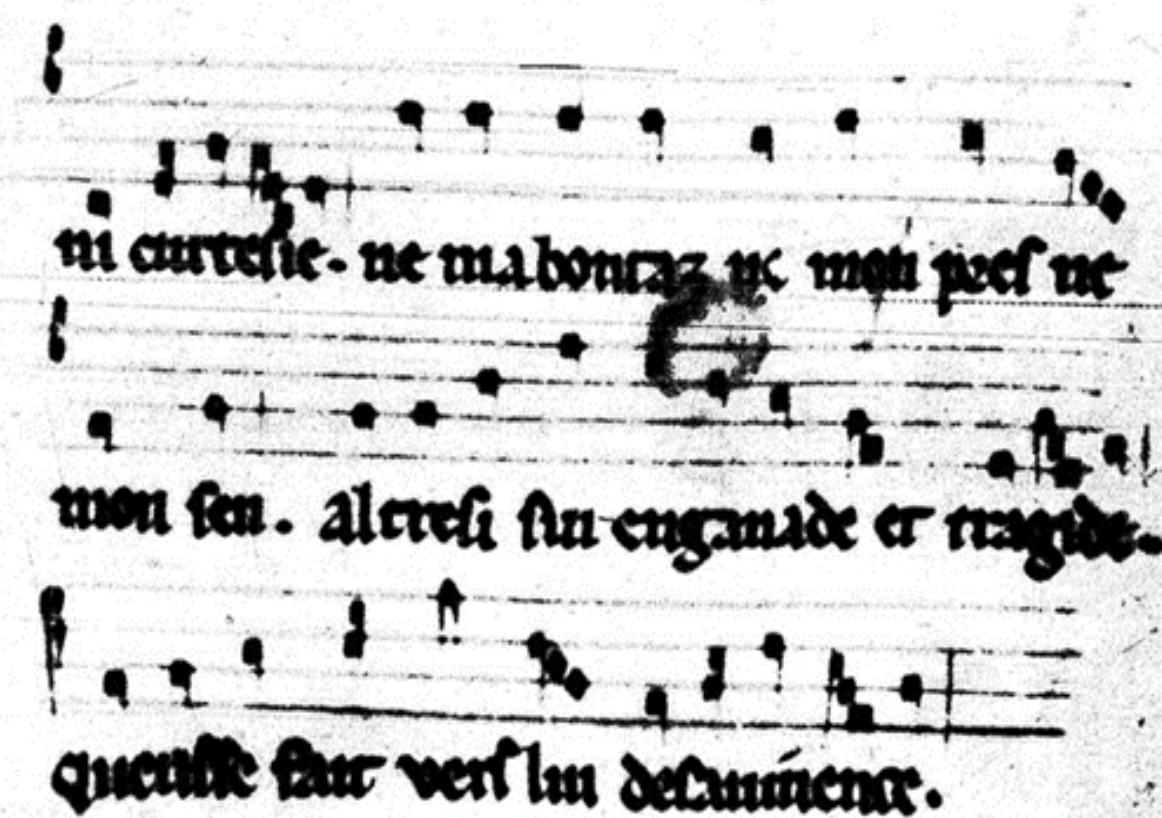 ni curtesie. ne ma bontaz ne mon pres ne
mon sen. Altresi sui enganade et tragide.
queusse fait vers lui desauinence.